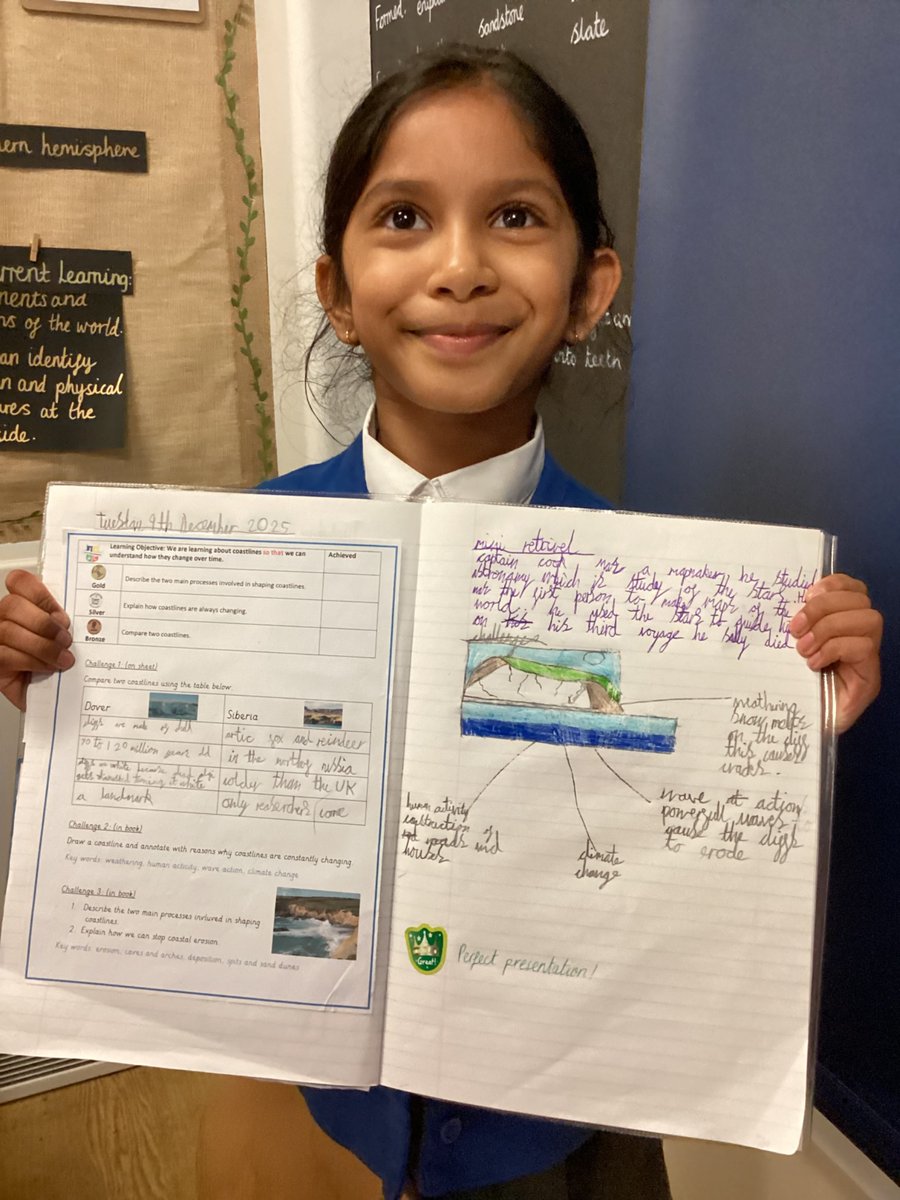 Formed.
sandstone
slate
ern hemisphere
rrent Learning:
ments and
ns of the world.
an identify
n and physical
ures at the
ide.
into teeth
tuesday 9th December 2025
Learning Objective: We are learning about coastlines so that we can
understand how they change over time.
Achieved
Gold
Describe the two main processes involved in shaping coastlines.
Silver
Explain how coastlines are always changing.
Bronze
Compare two coastlines.
Challenge 1: (on sheet)
Compare two coastlines using the table below.
Dover
Siberia
are made of
artic fox and reindeer
70 to 120 million years
in the russia
white because
colder than the UK
a landmark
only researchers come
Challenge 2: (in book)
Draw a coastline and annotate with reasons why coastlines are constantly changing.
Key words: weathering, human activity, wave action, climate change
Challenge 3: (in book)
1. Describe the two main processes inrlured in shaping
coastlines.
2. Explain how we can stop coastal erosion.
Key words: erosion, caves and arches, deposition, spits and sand dunes
mini retrivel
captain cook was a mapmaker he studied
astronamy which is study of the stars. He
was the first person to make maps of the
world. he used the stars to guide him
on his third voyage he sadly died
challenge
weathering
snow melts
on the cliffs
this causes
cracks.
wave action
powerfull waves
cause the cliffs
to erode
climate
change
human activity
of
roads and
houses
Great!
Perfect presentation!